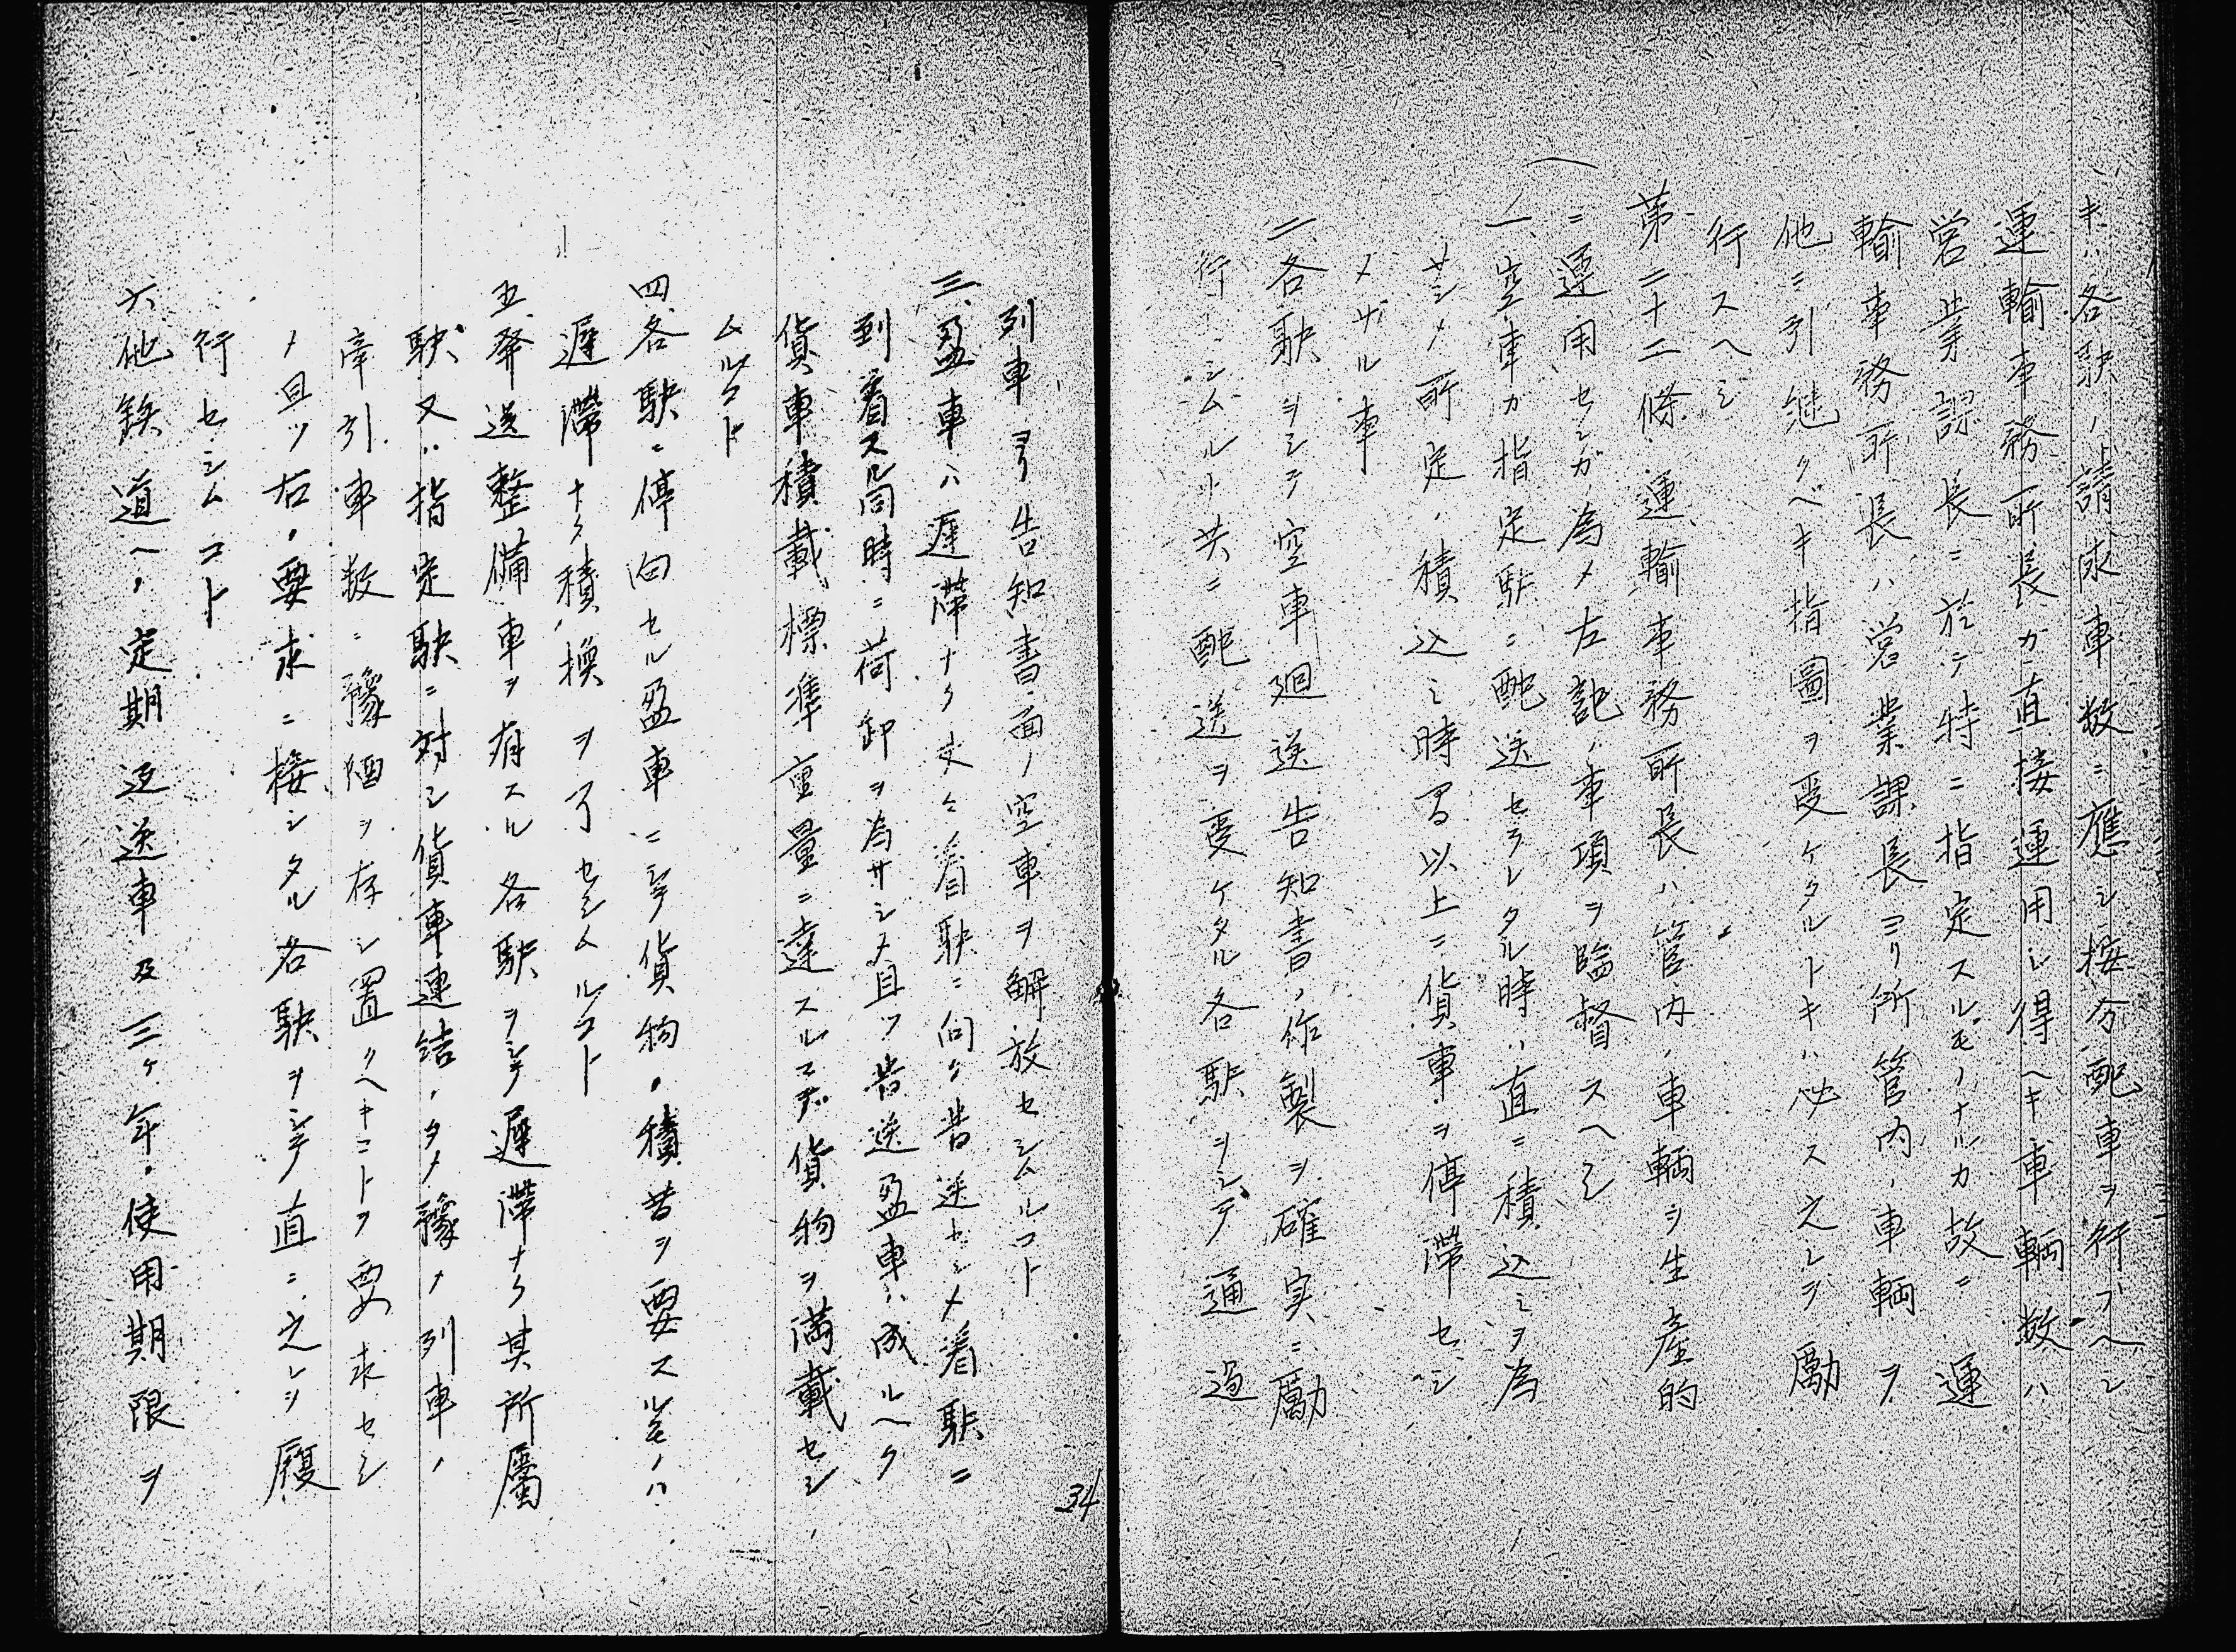 キハ各駅ノ請求車数ニ應シ按分配車ヲ行フヘシ
運輸事務所長カ直接運用シ得ヘキ車輌数ハ
営業課長ニ於テ特ニ指定スルモノナルカ故ニ運
輸事務所長ハ営業課長ヨリ所管内ノ車輌ヲ
他ニ引継クベキ指圖ヲ受ケタルトキハ必ス之レヲ勵
行スヘシ
第二十二條 運輸事務所長ハ管内ノ車輌ヲ生産的
ニ運用センガ為メ左記ノ事項ヲ臨督スヘシ
一、空車カ指定駅ニ配送セラレタル時ハ直ニ積込ミヲ為
サシメ所定ノ積込ミ時間以上ニ貨車ヲ停滞セシ
メザル事
二各駅ヲシテ空車廻送告知書ノ作製ヲ確実ニ勵
行シムルト共ニ配送ヲ受ケタル各駅ヲシテ通過
列車ヨリ告知書面ノ空車ヲ解放セシムルコト
三、盈車ハ遅滞ナク夫々着駅ニ向ケ発送セシメ着駅ニ
到着スル同時ニ荷卸ヲ為サシメ且ツ発送盈車ハ成ルヘク
貨車積載標準重量ニ達スルマデ貨物ヲ満載セシ
ムルコト
四各駅ニ停向セル盈車ニシテ貨物ノ積替ヲ要スルモノハ
遅滞ナク積換ヲ了セシムルコト
五、発送整備車ヲ有スル各駅ヲシテ遅滞ナク其所屬
駅又ハ指定駅ニ対シ貨車連結ノタメ豫メ列車ノ
牽引車数ニ豫裕ヲ存シ置クヘキコトヲ要求セシ
メ且ツ右ノ要求ニ接シタル各駅ヲシテ直ニ之レヲ履
行セシムコト
六、他鉄道ヘノ定期返送車及三ヶ年ノ使用期限ヲ
34